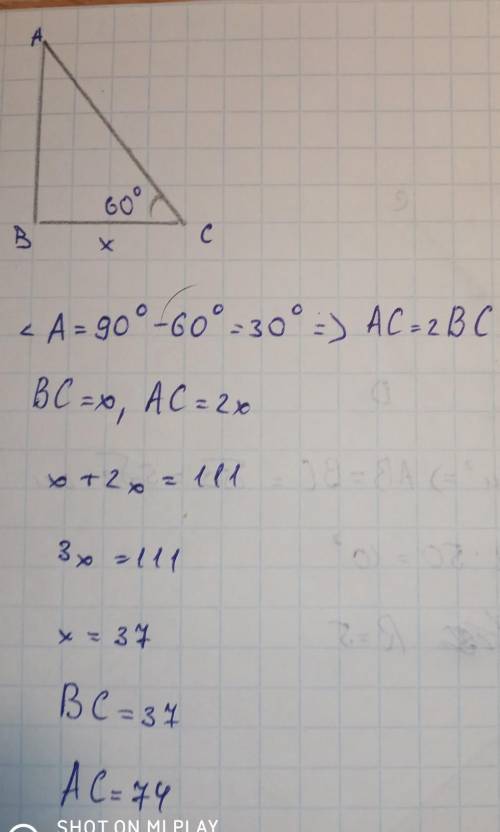 A
60°
B x C
< A = 90° - 60° = 30° => AC = 2BC
BC = x, AC = 2x
x + 2x = 111
3x = 111
x = 37
BC = 37
AC = 74
SHOT ON MI PLAY